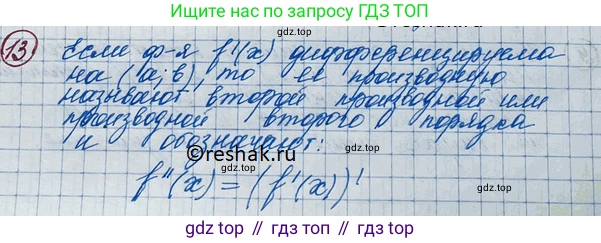 Ищите нас по запросу ГДЗ ТОП
13 Если ф-я f'(x) дифференцируема
на (a; b), то ее производную
называют второй производной или
производной второго порядка
и обозначают:
©reshak.ru
f''(x) = (f'(x))'
gdz.top / gdz.top / gdz.top / gdz.top / gdz.top